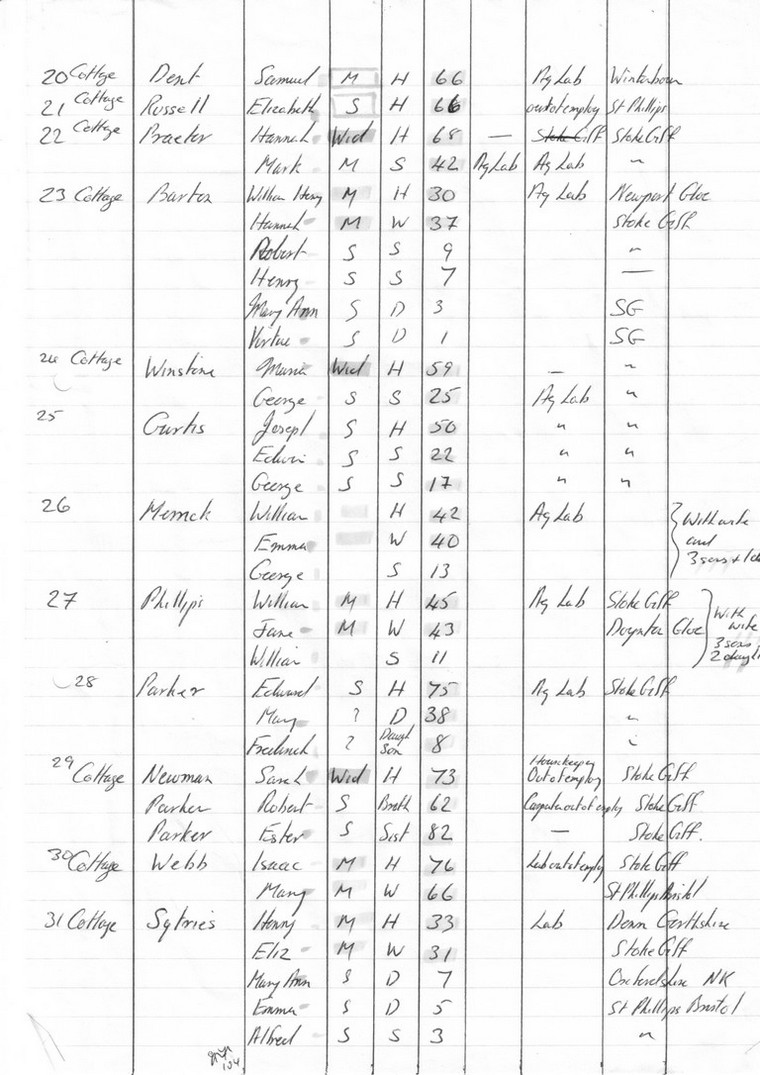 20 Cottage Dent Samuel M H 66 Ag Lab Winterbourn
21 Cottage Russell Elizabeth S H 66 out of employ St Phillips
22 Cottage Praetor Hannah Wid H 68 — Stoke Giff Stoke Giff
Mark M S 42 Ag Lab Ag Lab "
23 Cottage Barton William Henry M H 30 Ag Lab Newport Gloc
Hannah M W 37 Stoke Giff
Robert S S 9 "
Henry S S 7 —
Mary Ann S D 3 SG
Virtue S D 1 SG
24 Cottage Winstone Maria Wid H 59 — "
George S S 25 Ag Lab "
25 Curtis Joseph S H 50 " "
Edwin S S 22 " "
George S S 17 " "
26 Merrick William H 42 Ag Lab With wife
Emma W 40 and
George S 13 3 sons + 1
27 Phillips William M H 45 Ag Lab Stoke Giff With
Jane M W 43 Doynton Gloc wife
William S 11 3 sons 2
28 Parker Edward S H 75 Ag Lab Stoke Giff
Mary ? D 38 "
Frederick ? Daugh Son 8 "
29 Cottage Newman Sarah Wid H 73 Housekeeper Out of employ Stoke Giff
Parker Robert S Broth 62 out of employ Stoke Giff
Parker Ester S Sist 82 — Stoke Giff.
30 Cottage Webb Isaac M H 76 Lab out of employ Stoke Giff
Mary M W 66 St Phillips Bristol
31 Cottage Henry M H 33 Lab Down
Eliz M W 31 Stoke Giff
Mary Ann S D 7 Oxfordshire NK
Emma S D 5 St Phillips Bristol
Alfred S S 3 "